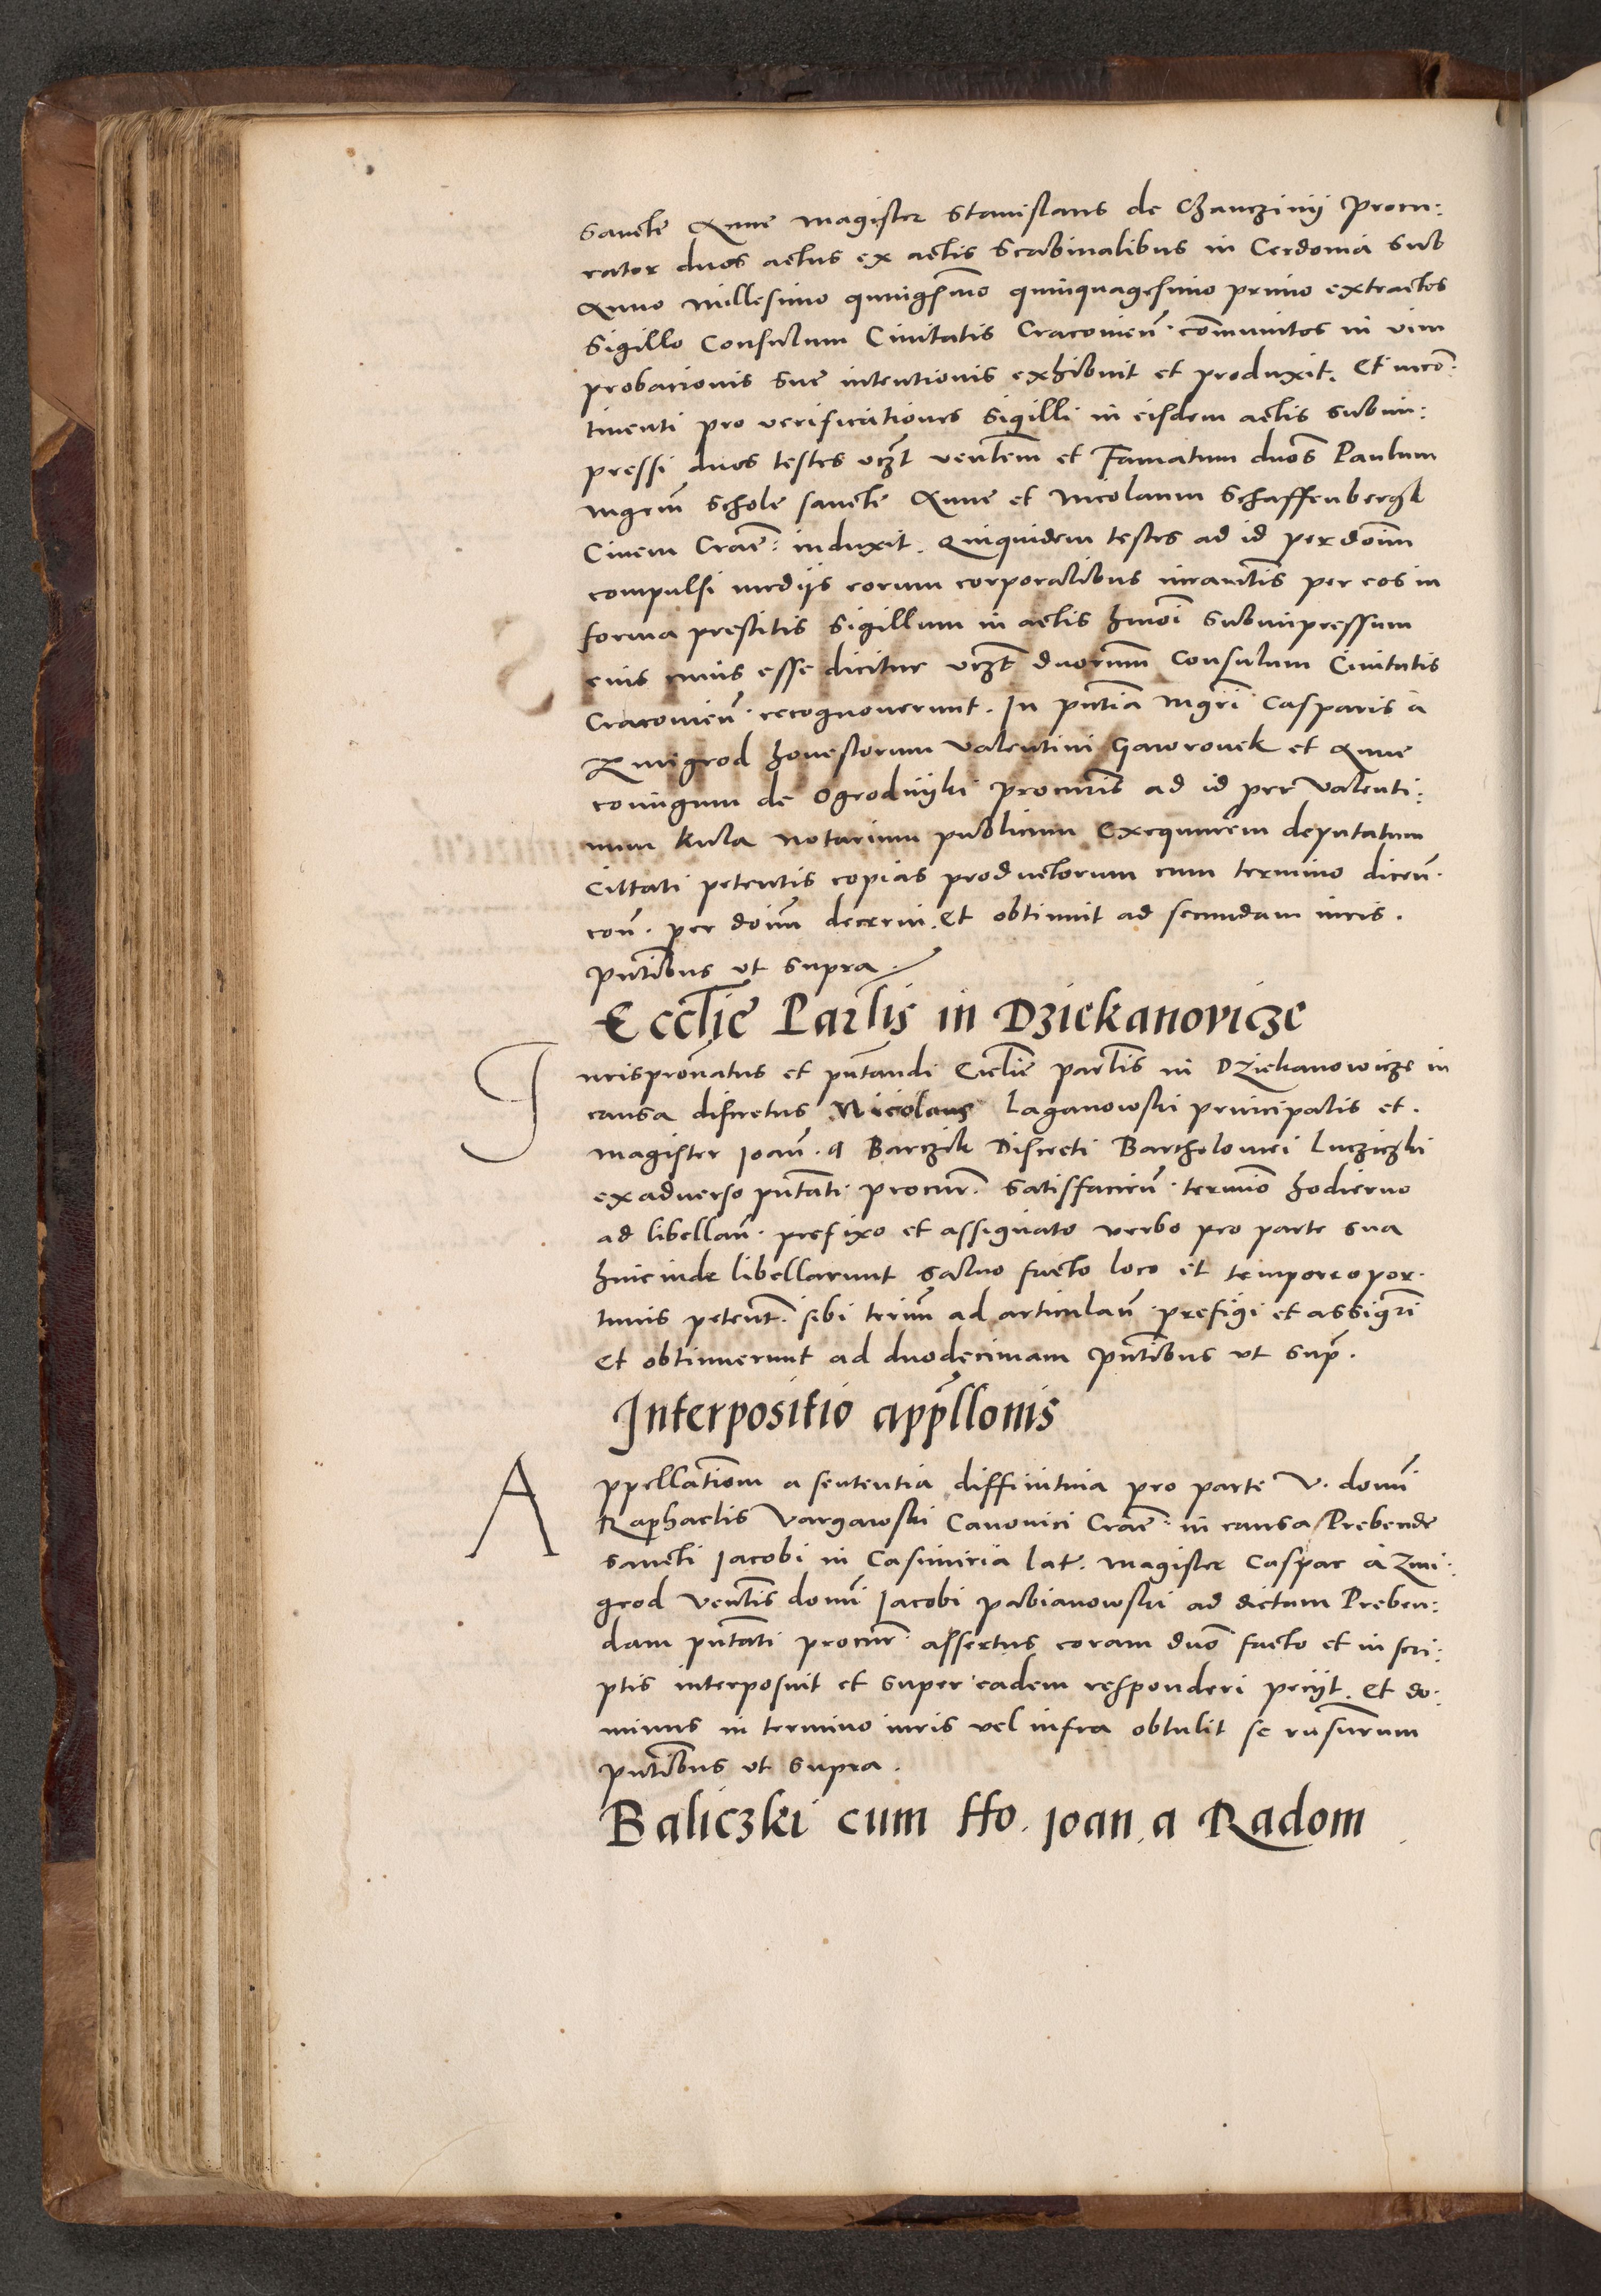 sancte Anne magister Stanislaus de Chanczinij procu:
rator duos actus ex actis Scabinalibus in Cerdonia sub
Anno millesimo quingesimo quinquagesimo primo extractos
Sigillo Consulum Civitatis Cracovien̄. communitos in vim
probacionis sue intentionis exhibuit et produxit. Et inco:
tinenti pro verificationes sigilli in eisdem actis subim:
pressi duos testes vczt ventem et Famatum dnos Paulum
mgrm Schole sancte Anne et Nicolaum Schaffenbergk
Civem Crac: induxit. Quiquidem testes ad id per dominū
compulsi medijs eorum corporalibus iuramtis per eos in
forma prestitis Sigillum in actis hmoi subimpressum
eius cuius esse dicitur vczt dnorum Consulum Civitatis
Cracovien̄. recognoverunt. In pntia mgri Casparis a
Zmigrod honestorum Valentini Gawronek et Anne
coniugum de Ogrodnijki procuris ad id per Valenti:
num Kula notarium publicum Exequutem deputatum
Cittati petentis copias productorum cum termino dicen̄.
con̄. per doim̄ decerni. Et obtinuit ad secundam iuris.
pntibus vt supra.
Ecclie Parlis in Dziekanovicze
J urispronatus et pntandi Ecclie parlis in Dziekanowicze in
causa discretus Nicolaus Laganowski principalis et.
magister Joan̄. a Barczik Discreti Bartholomei Lucziczki
ex adverso pntati procur. satisfacien̄. termio hodierno
ad libellan̄. prefixo et assignato verbo pro parte sua
hincinde libellarunt salvo facto loco et tempore opor.
tunis petent. sibi terim̄ ad articulan̄. prefigi et assigri
Et obtinuerunt ad duodecimam pntibus vt sup.
Interpositio appllonis
A ppellationm a sententia diffinitiva pro parte V. domi
Raphaelis Vargawski Canonici Crac. in causa Prebende
sancti Jacobi in Casimiria lat. magister Caspar a Zmi:
grod ventis domi Jacobi pabianowski ad dictam Preben:
dam pntati procur. assertus coram dno facto et in scri:
ptis interposuit et super eadem responderi peciit. Et do:
minus in termino iuris vel infra obtulit se rnsurum
pntibus vt supra.
Baliczki cum Ho. Joan. a Radom